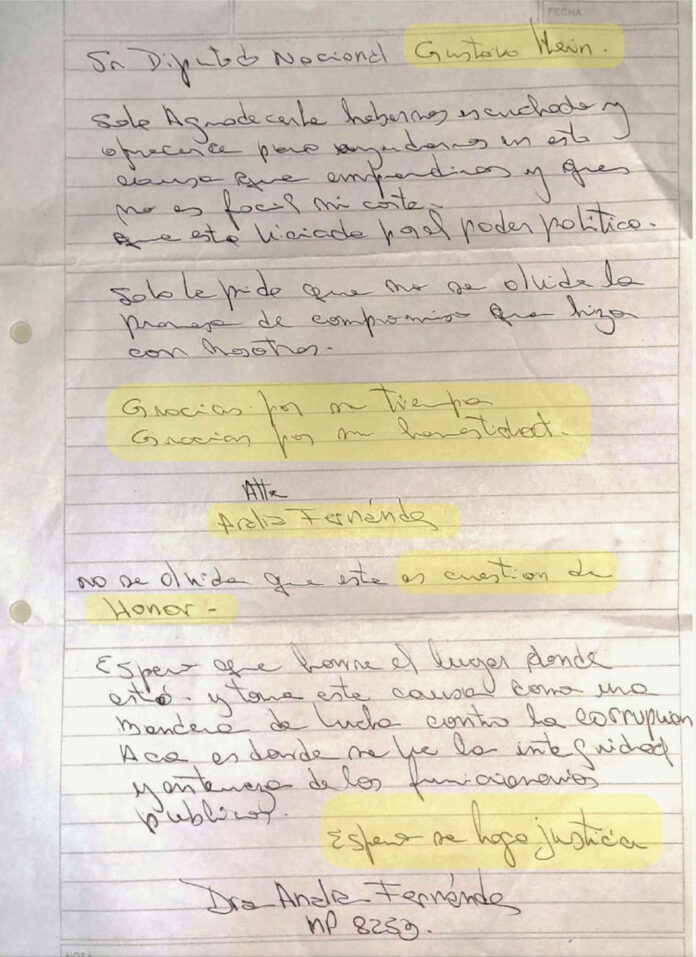 FECHA
Sr Diputado Nacional Gustavo Hein.
Solo Agradecerle habernos escuchado y
ofrecerse para ayudarnos en esta
causa que emprendimos y que
no es facil ni corta.
que esta viciada por el poder politico.
Solo le pido que no se olvide la
promesa de compromiso que hizo
con nosotros.
Gracias por su tiempo
Gracias por su honestidad.
Atte
Analia Fernández
No se olvide que esto es cuestion de
Honor -
Espero que honre el lugar donde
está y tome esta causa como una
bandera de lucha contra la corrupcion
Aca es donde se ve la integridad
y entereza de los funcionarios
publicos.
Espero se haga justicia
Dra Analia Fernández
MP 8253.
NOTA